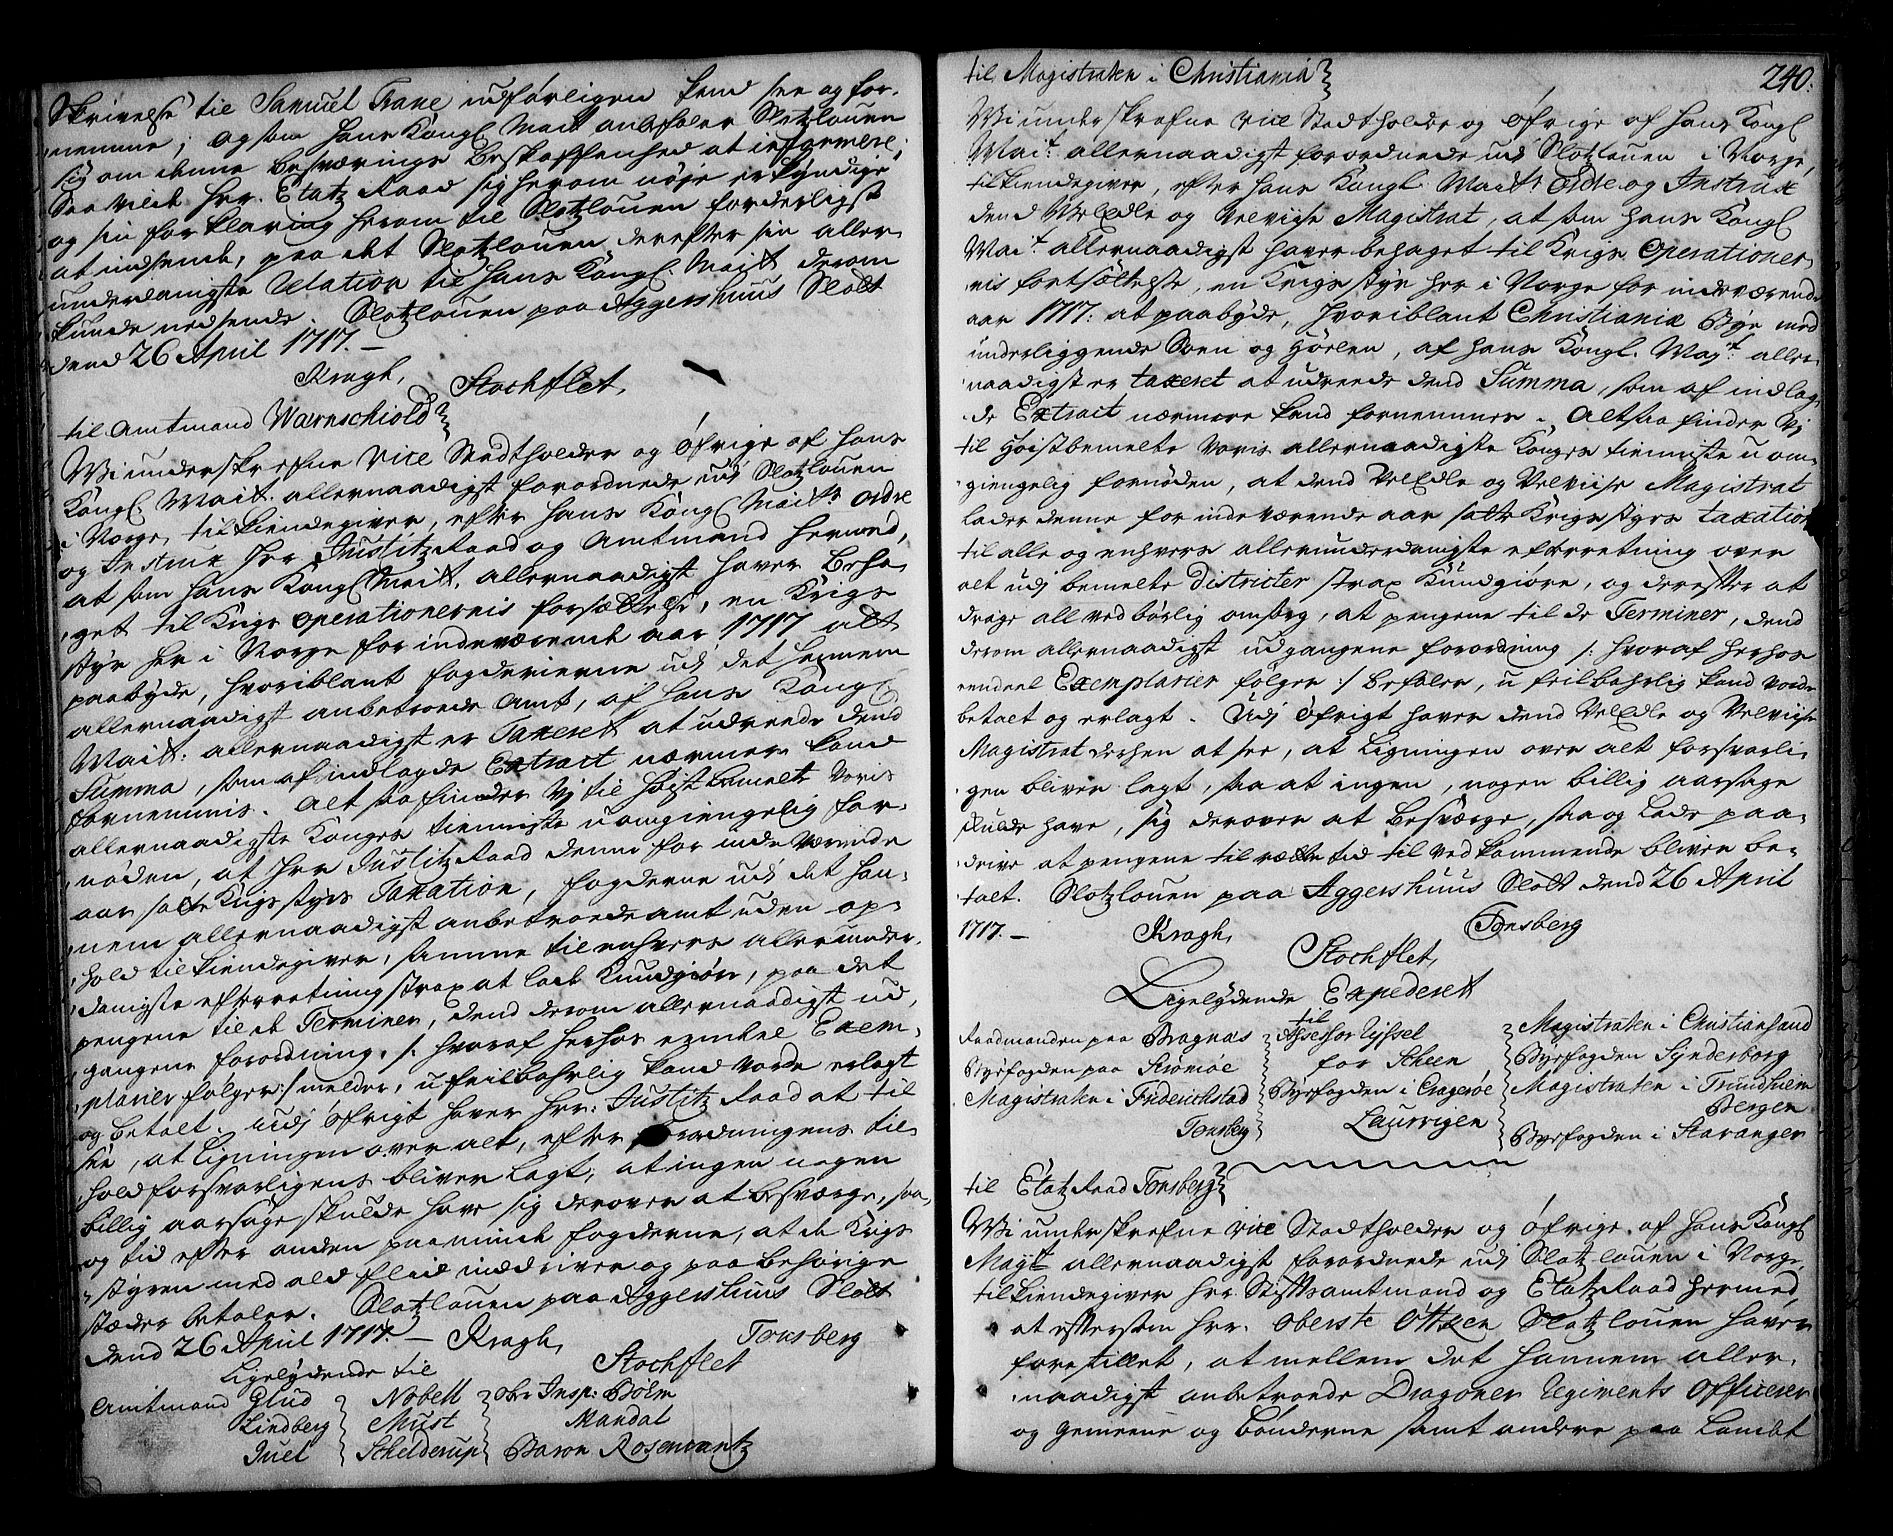 Skrivelse til Samuel Trane udførligen kand see og for-
nemme; og som Hans Kongl Maitt anbefaler Slotzlouen
sig om denne besværings beskaffenhed at informere;
Saa vilde Hr. Etatz Raad sig herom nøye erkyndige
og sin forklaring herom til Slotzlouen forderligst
at indsende, paa det Slotzlouen derefter sin aller
underdanigste Relation til Hans Kongl. Maitt derom
kunde nedsende. Slotzlouen paa Aggershuus Slott
dend 26 April 1717.
Kragh, Stochflet,
til Amtmand Wærnschiold
Wi underskrefne Vice Stadtholder og Øfrige af Hans
Kongl. Maitt. allernaadigst forordnede udj Slotzlouen
i Norge, tilkiendegiver, efter Hans Kongl Maitts Ordre
og Instrux Hr Justitz Raad og Amtmand herved,
at som Hans Kongl Maitt. allernaadigst haver beha-
get til Krigs operationernis forsættelse, en Krigs
styr her i Norge for indeværende aar 1717 alt
paabyde, hvoriblant fogderierne udj det hannem
allernaadigst anbetroede Amt, af Hans Kongl
Maitt: allernaadigst er Taxeret at udreede dend
Summa, som af indlagde Extract nærmere kand
fornemmis. Alt saa finder Vj til Høystbemelte Voris
allernaadigste Konges tienniste uomgiengelig for-
nøden, at Hrr Justitz Raad denne for indeværende
aar satte Krigsstyrs Taxation, fogderne udj det han-
nem allernaadigst anbetroede amt uden op-
hold tilkiendegiver, samme til enhvers allerunder-
danigste efterretning strax at lade Kundgiøre, paa det
pengene til de Terminer, dend derom allernaadigst ud-
gangene forordning /: hvoraf herhos eenekel Exem-
plarier følger :/ melder, ufeilbahrlig kand vorde erlagt
og betalt. Udj øfrigt haver Hrr: Justitz Raad at til
see, at Ligningen over alt, efter forordningens til-
hold forsvarligens bliver lagt, at ingen nogen
billig aarsage skulde have sig derover at besværge, saa
og tid efter anden paaminde fogderne, at de Krigs
styren med ald flid inddriver og paa behørige
stæder betaler. Slotzlouen paa Aggershuus Slott
dend 26 April 1717. Kragh, Tonsberg
Stochflet
Ligelydende til
Amtmand Glud Nobell obr Insp: Bøhm
Lindberg Must Mandal
Juel Schelderup Baron Rosencrantz
240.
til Magistraten i Christiania
Wi underskrefne Vice Stadtholder og Øfrige af Hans Kongl
Mait. allernaadigst forordnede udj Slotzlouen i Norge,
tilkiendegiver, efter Hans Kongl. Maitts Ordre og Instrux
dend VelEdle og Velviise Magistrat, at som Hans Kongl
Mait. allernaadigst haver behaget til Krigs Operationer
nis fortsættelse, en Krigsstyr her i Norge for indeværende
aar 1717: at paabyde, hvoriblant Christianiæ Bye med
underliggende Soen og Hørlen, af Hans Kongl. Mayt: aller-
naadigst er taxeret at udreede dend Summa, som af indlag-
de Extract nærmere kand fornemmes. Altsaa finder Vj
til Høistbemelte Voris allernaadigste Konges tienniste u om-
giengelig fornøden, at dend VelEdle og Velviise Magistrat
lader denne for indeværende aar satte Krigsstyrs taxation
til alle og enhvers allerunderdanigste efterretning over
alt udj bemelte Districter strax Kundgiøre, og derefter at
drage all ved børlig omsorg, at pengene til de Terminer, dend
derom allernaadigst udgangene forordning /: hvoraf herhos
eendeel Exemplarier følger :/ befaler, u feilbahrlig kand vorde
betalt og erlagt. Udj Øfrigt haver dend VelEdle og Velviise
Magistrat derhen at see, at Ligningen over alt forsvarli-
gen bliver lagt, saa at ingen, nogen billig aarsage
skulde have, sig derover at besværge, saa og lade paa-
drive at pengene til rætte tid til vedkommende bliver be-
talt. Slotzlouen paa Aggershuus Slott dend 26 April
1717. Kragh, Tonsberg
Stochflet,
Ligelydende Expederet
til
Raadmanden paa Bragnæs Assessor Ryssel Magistraten i Christiansand
Byefogden paa Strømsøe for Scheen Byefogden Synderborg
Magistraten i Friderichstad Byefogden i Cragerøe Magistraten i Trundheim
Tonsberg Laurvigen Bergen
Byefogden i Stavanger
til Etatz Raad Tonsberg
Wi underskrefne Vice Stadtholder og Øfrige af Hans Kongl
Mayt allernaadigst forordnede udj Slotzlouen i Norge,
tilkiendegiver Hr: Stiftsamtmand og Etatz Raad hermed,
at eftersom Hrr. Oberste Ottzen Slotzlouen haver
foretillet, at mellem det hannem aller-
naadigst anbetroede Dragoner Regiments Officerer
og gemeene og bønderne samt andre paa Landet